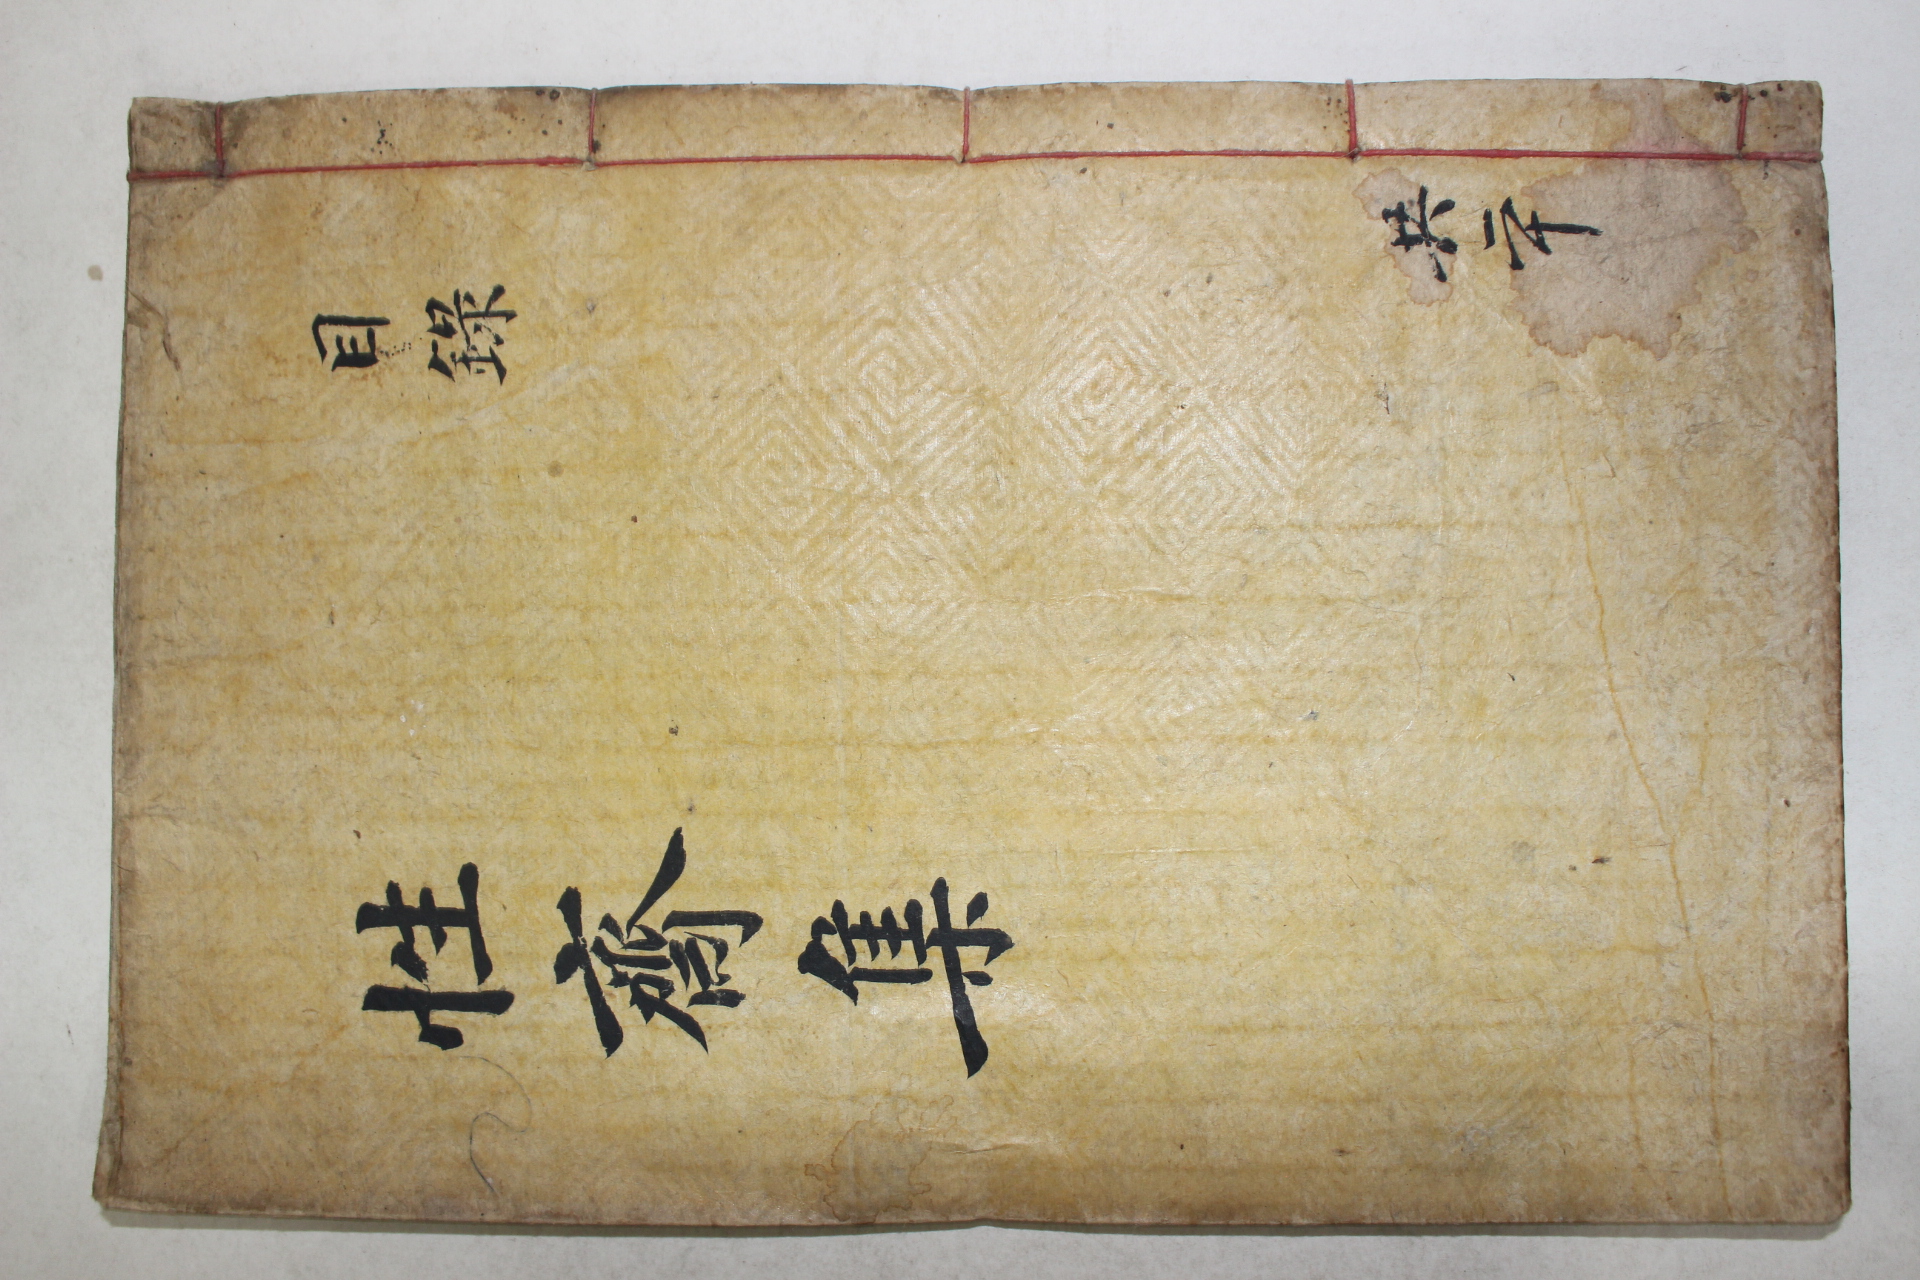 性齋集
目錄
共二十